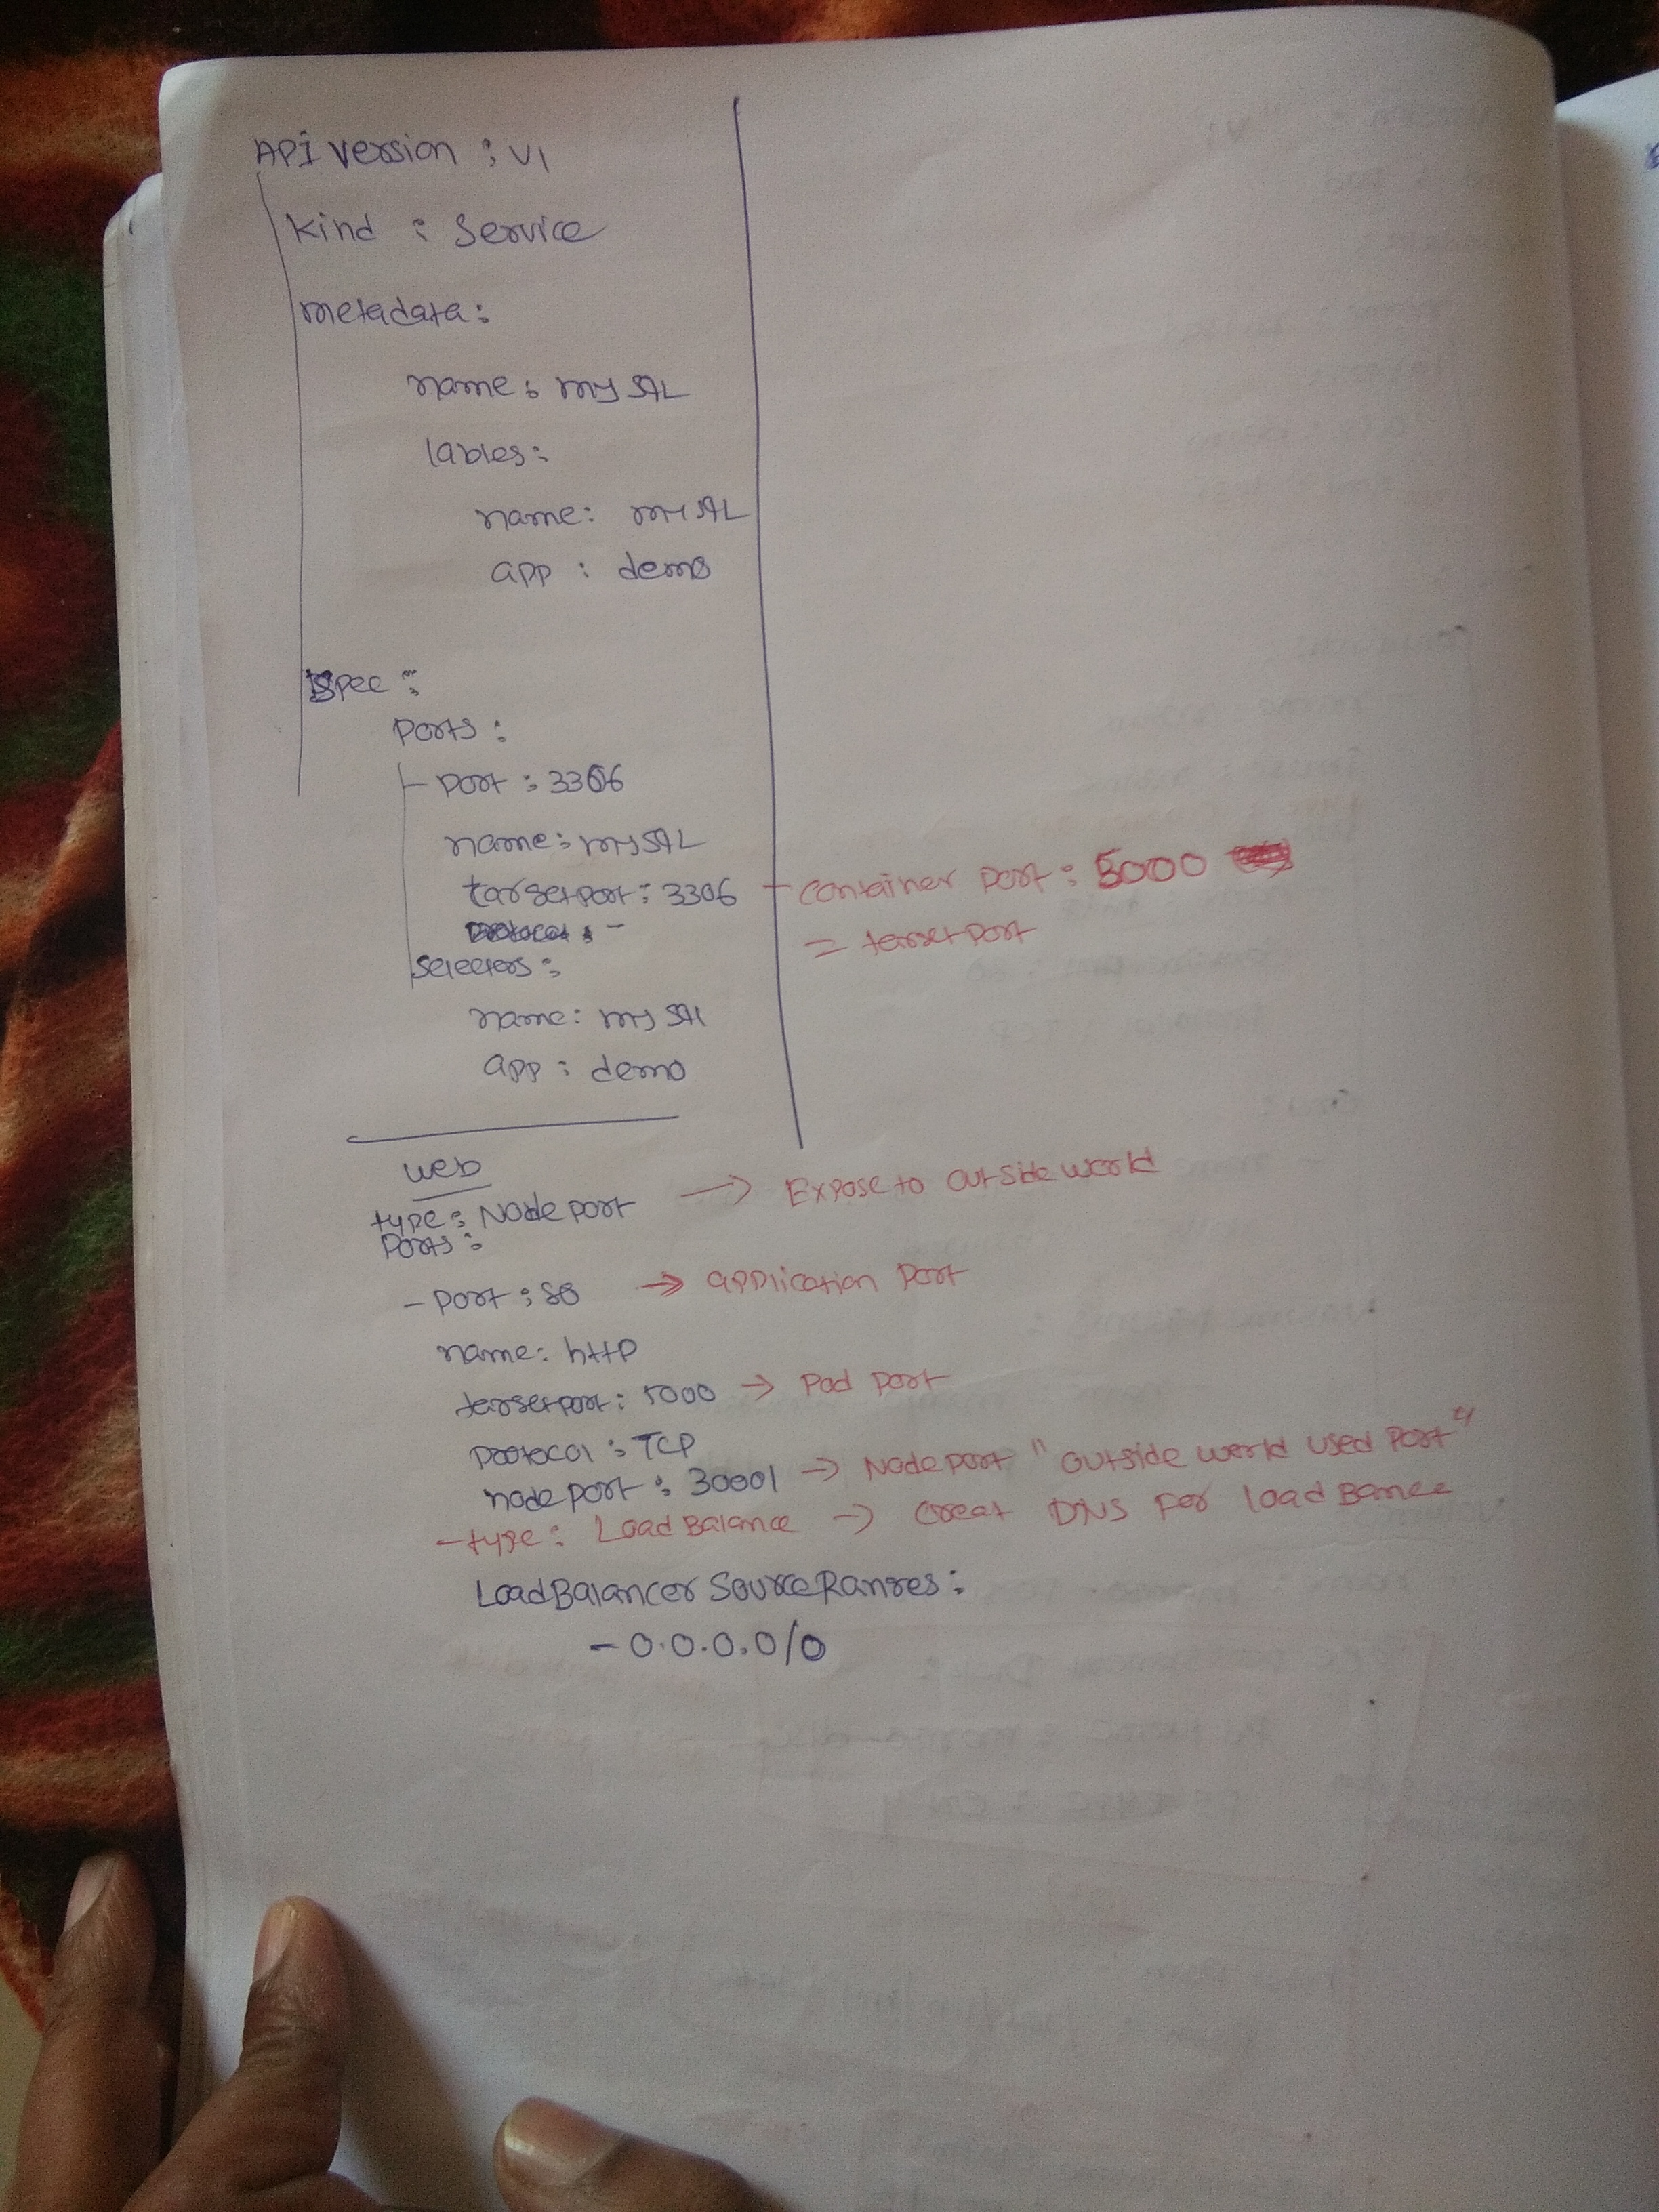 API version : v1
kind : Service
metadata:
name: mysql
lables:
name: mysql
app : demo
spec :
Ports :
- port : 3306
name: mysql
targetport: 3306 - container port: 5000
= targetport
selectors:
name: mysql
app : demo
web
type: Node port → Expose to outside world
Ports:
- Port : 80 → application Port
name: http
targetport: 5000 → Pod port
protocol : TCP
node port : 30001 → Node port "outside world used port"
- type: Load Balance → creat DNS for load Bance
LoadBalancer SourceRanges:
- 0.0.0.0/0